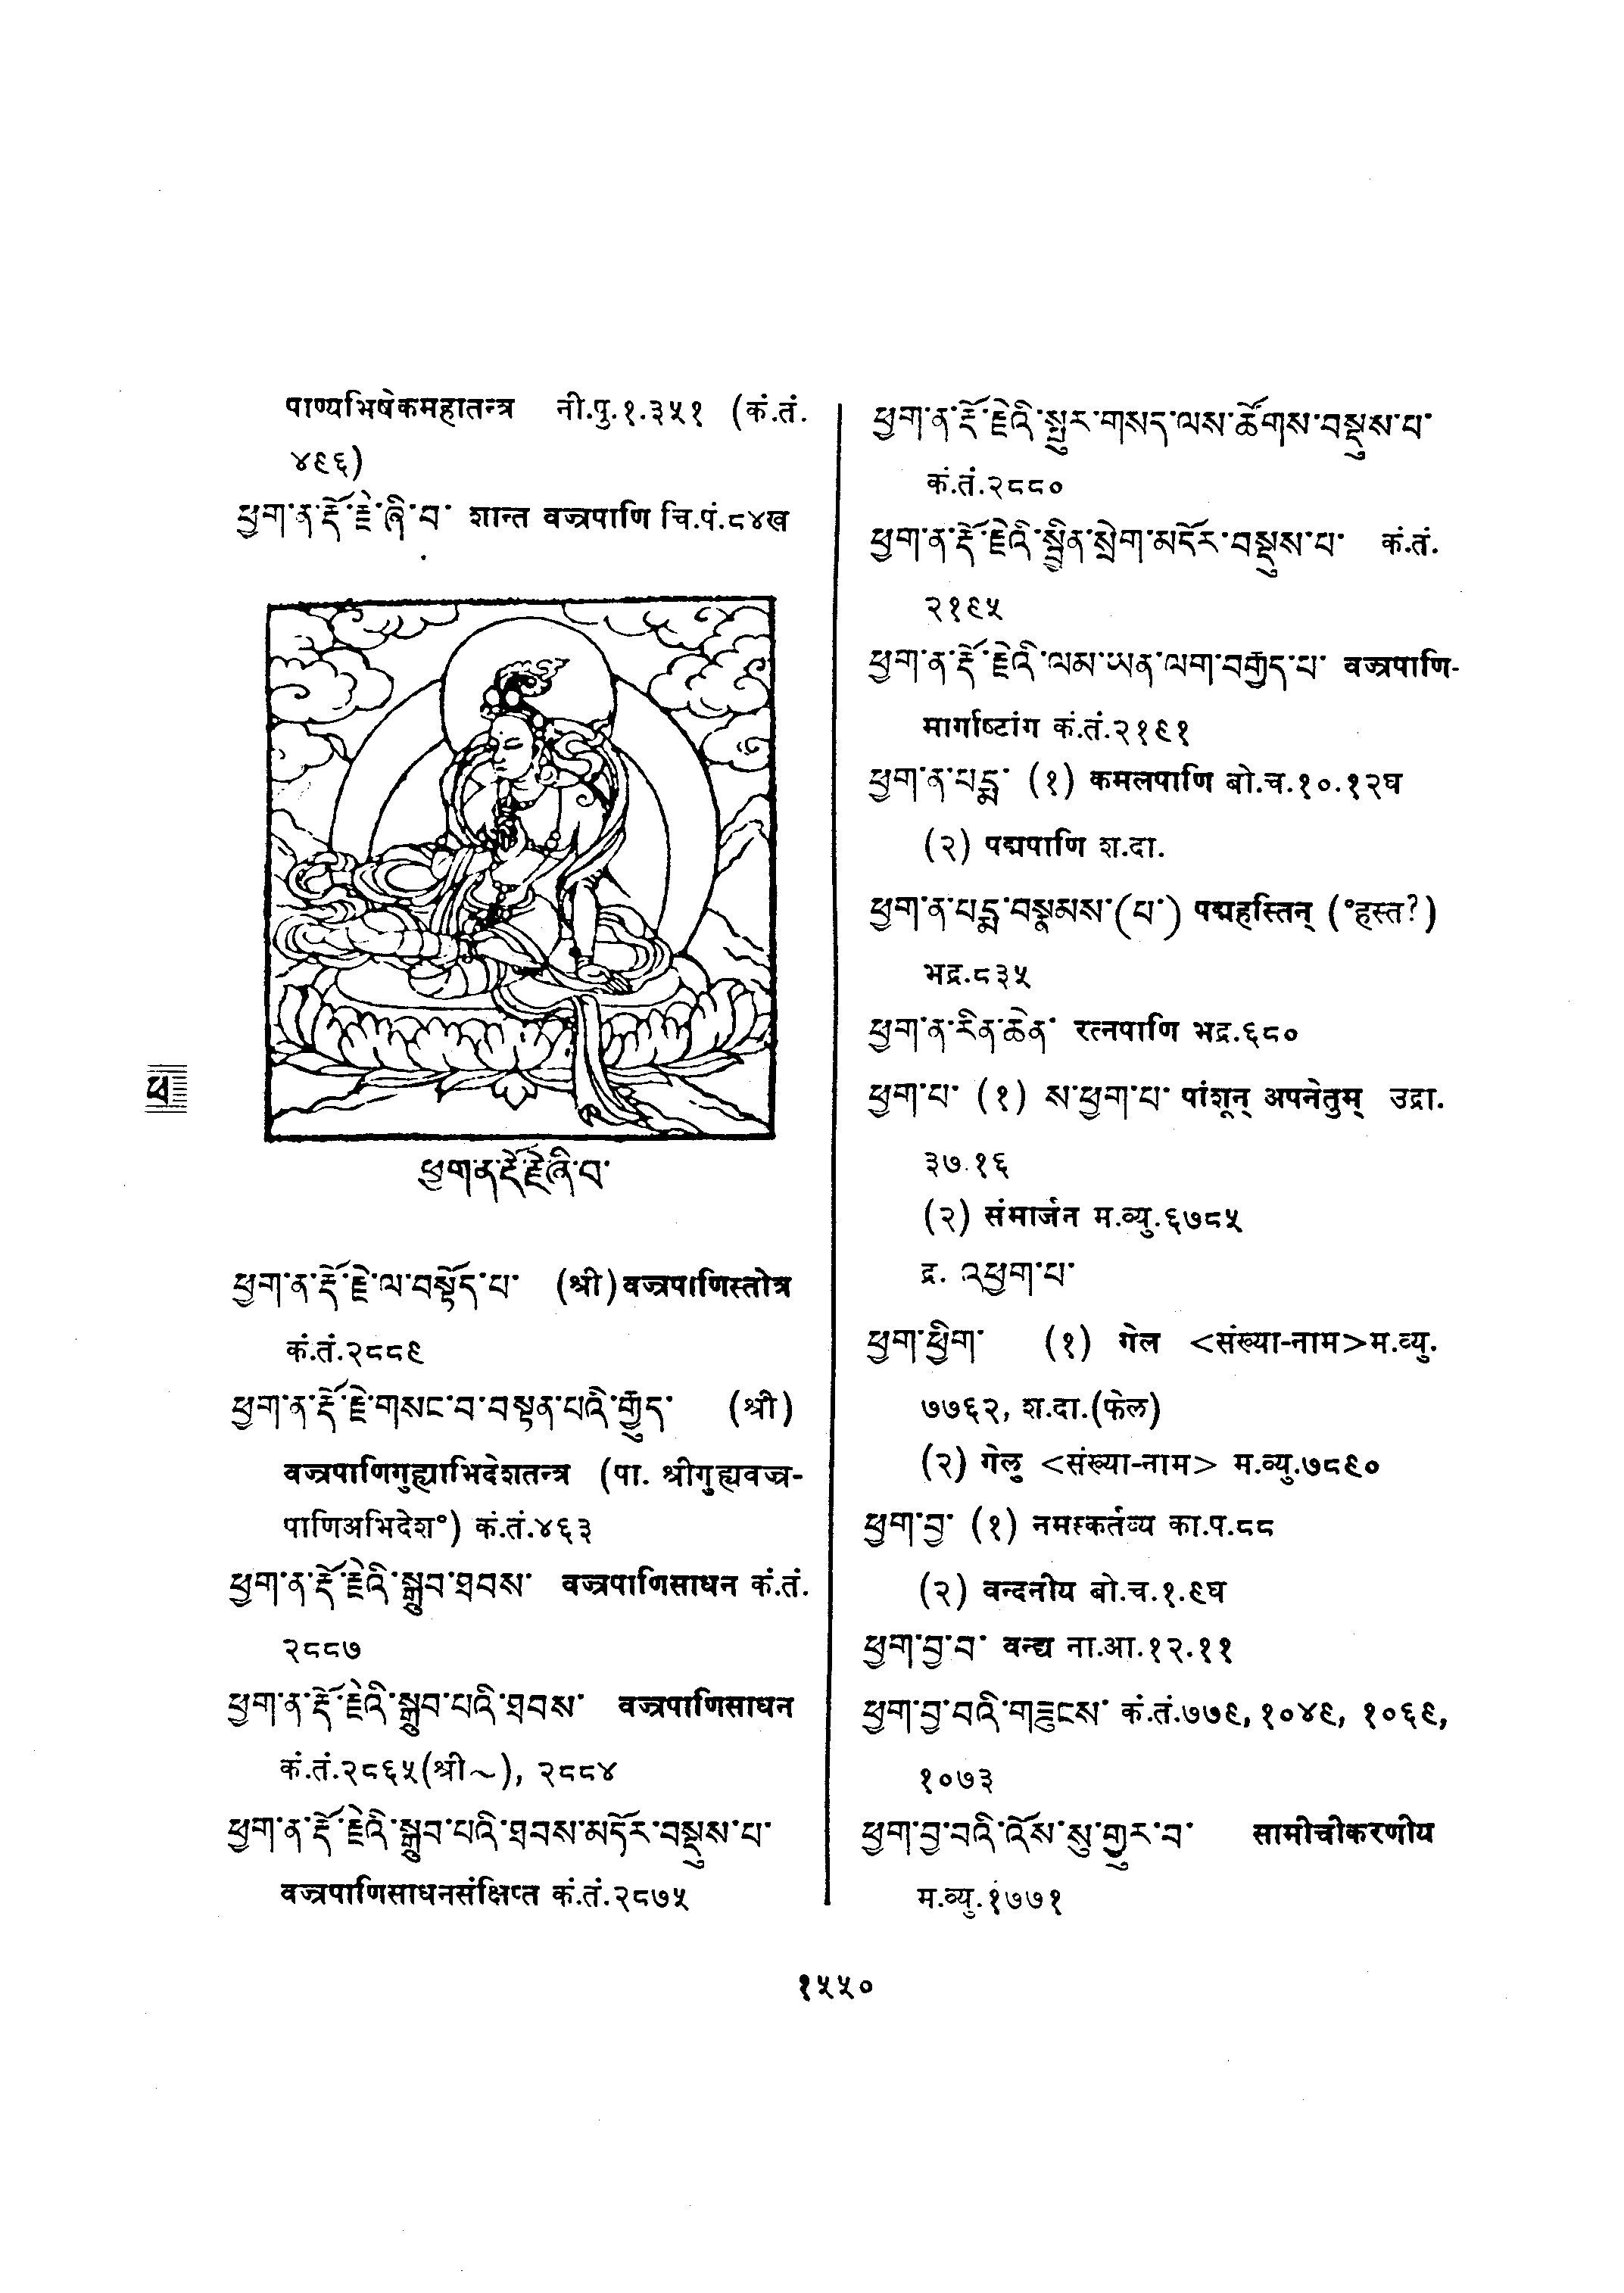 पाण्यभिषेकमहातन्त्र नी.पु.१.३५१ (कं.तं.
४९६)
ཕྱག་ན་རྡོ་རྗེ་ཞི་བ་ शान्त वज्रपाणि चि.पं.८४ख
ཕྱག་ན་རྡོ་རྗེ་ཞི་བ་
ཕྱག་ན་རྡོ་རྗེ་ལ་བསྟོད་པ་ (श्री) वज्रपाणिस्तोत्र
कं.तं.२८८९
ཕྱག་ན་རྡོ་རྗེ་གསང་བ་བསྟན་པའི་རྒྱུད་ (श्री)
वज्रपाणिगुह्याभिदेशतन्त्र (पा. श्रीगुह्यवज्र-
पाणिअभिदेश°) कं.तं.४६३
ཕྱག་ན་རྡོ་རྗེའི་སྒྲུབ་ཐབས་ वज्रपाणिसाधन कं.तं.
२८८७
ཕྱག་ན་རྡོ་རྗེའི་སྒྲུབ་པའི་ཐབས་ वज्रपाणिसाधन
कं.तं.२८६५(श्री~), २८८४
ཕྱག་ན་རྡོ་རྗེའི་སྒྲུབ་པའི་ཐབས་མདོར་བསྡུས་པ་
वज्रपाणिसाधनसंक्षिप्त कं.तं.२८७५
ཕ
ཕྱག་ན་རྡོ་རྗེའི་སྤུར་གསད་ལས་ཚོགས་བསྡུས་པ་
कं.तं.२८८०
ཕྱག་ན་རྡོ་རྗེའི་སྦྱིན་སྲེག་མདོར་བསྡུས་པ་ कं.तं.
२१९५
ཕྱག་ན་རྡོ་རྗེའི་ལམ་ཡན་ལག་བརྒྱད་པ་ वज्रपाणि-
मार्गाष्टांग कं.तं.२१९१
ཕྱག་ན་པདྨ་ (१) कमलपाणि बो.च.१०.१२घ
(२) पद्मपाणि श.दा.
ཕྱག་ན་པདྨ་བསྣམས་(པ་) पद्महस्तिन् (°हस्त?)
भद्र.८३५
ཕྱག་ན་རིན་ཆེན་ रत्नपाणि भद्र.६८०
ཕྱག་པ་ (१) ས་ཕྱག་པ་ पांशून् अपनेतुम् उद्रा.
३७.१६
(२) संमार्जन म.व्यु.६७८५
द्र. འཕྱག་པ་
ཕྱག་ཕྱིག་ (१) गेल <संख्या-नाम>म.व्यु.
७७६२, श.दा.(फेल)
(२) गेलु <संख्या-नाम> म.व्यु.७८९०
ཕྱག་བྱ་ (१) नमस्कर्तव्य का.प.८८
(२) वन्दनीय बो.च.१.९घ
ཕྱག་བྱ་བ་ वन्द्य ना.आ.१२.११
ཕྱག་བྱ་བའི་གཟུངས་ कं.तं.७७९, १०४९, १०६९,
१०७३
ཕྱག་བྱ་བའི་འོས་སུ་གྱུར་བ་ सामीचीकरणीय
म.व्यु.१७७१
१५५०